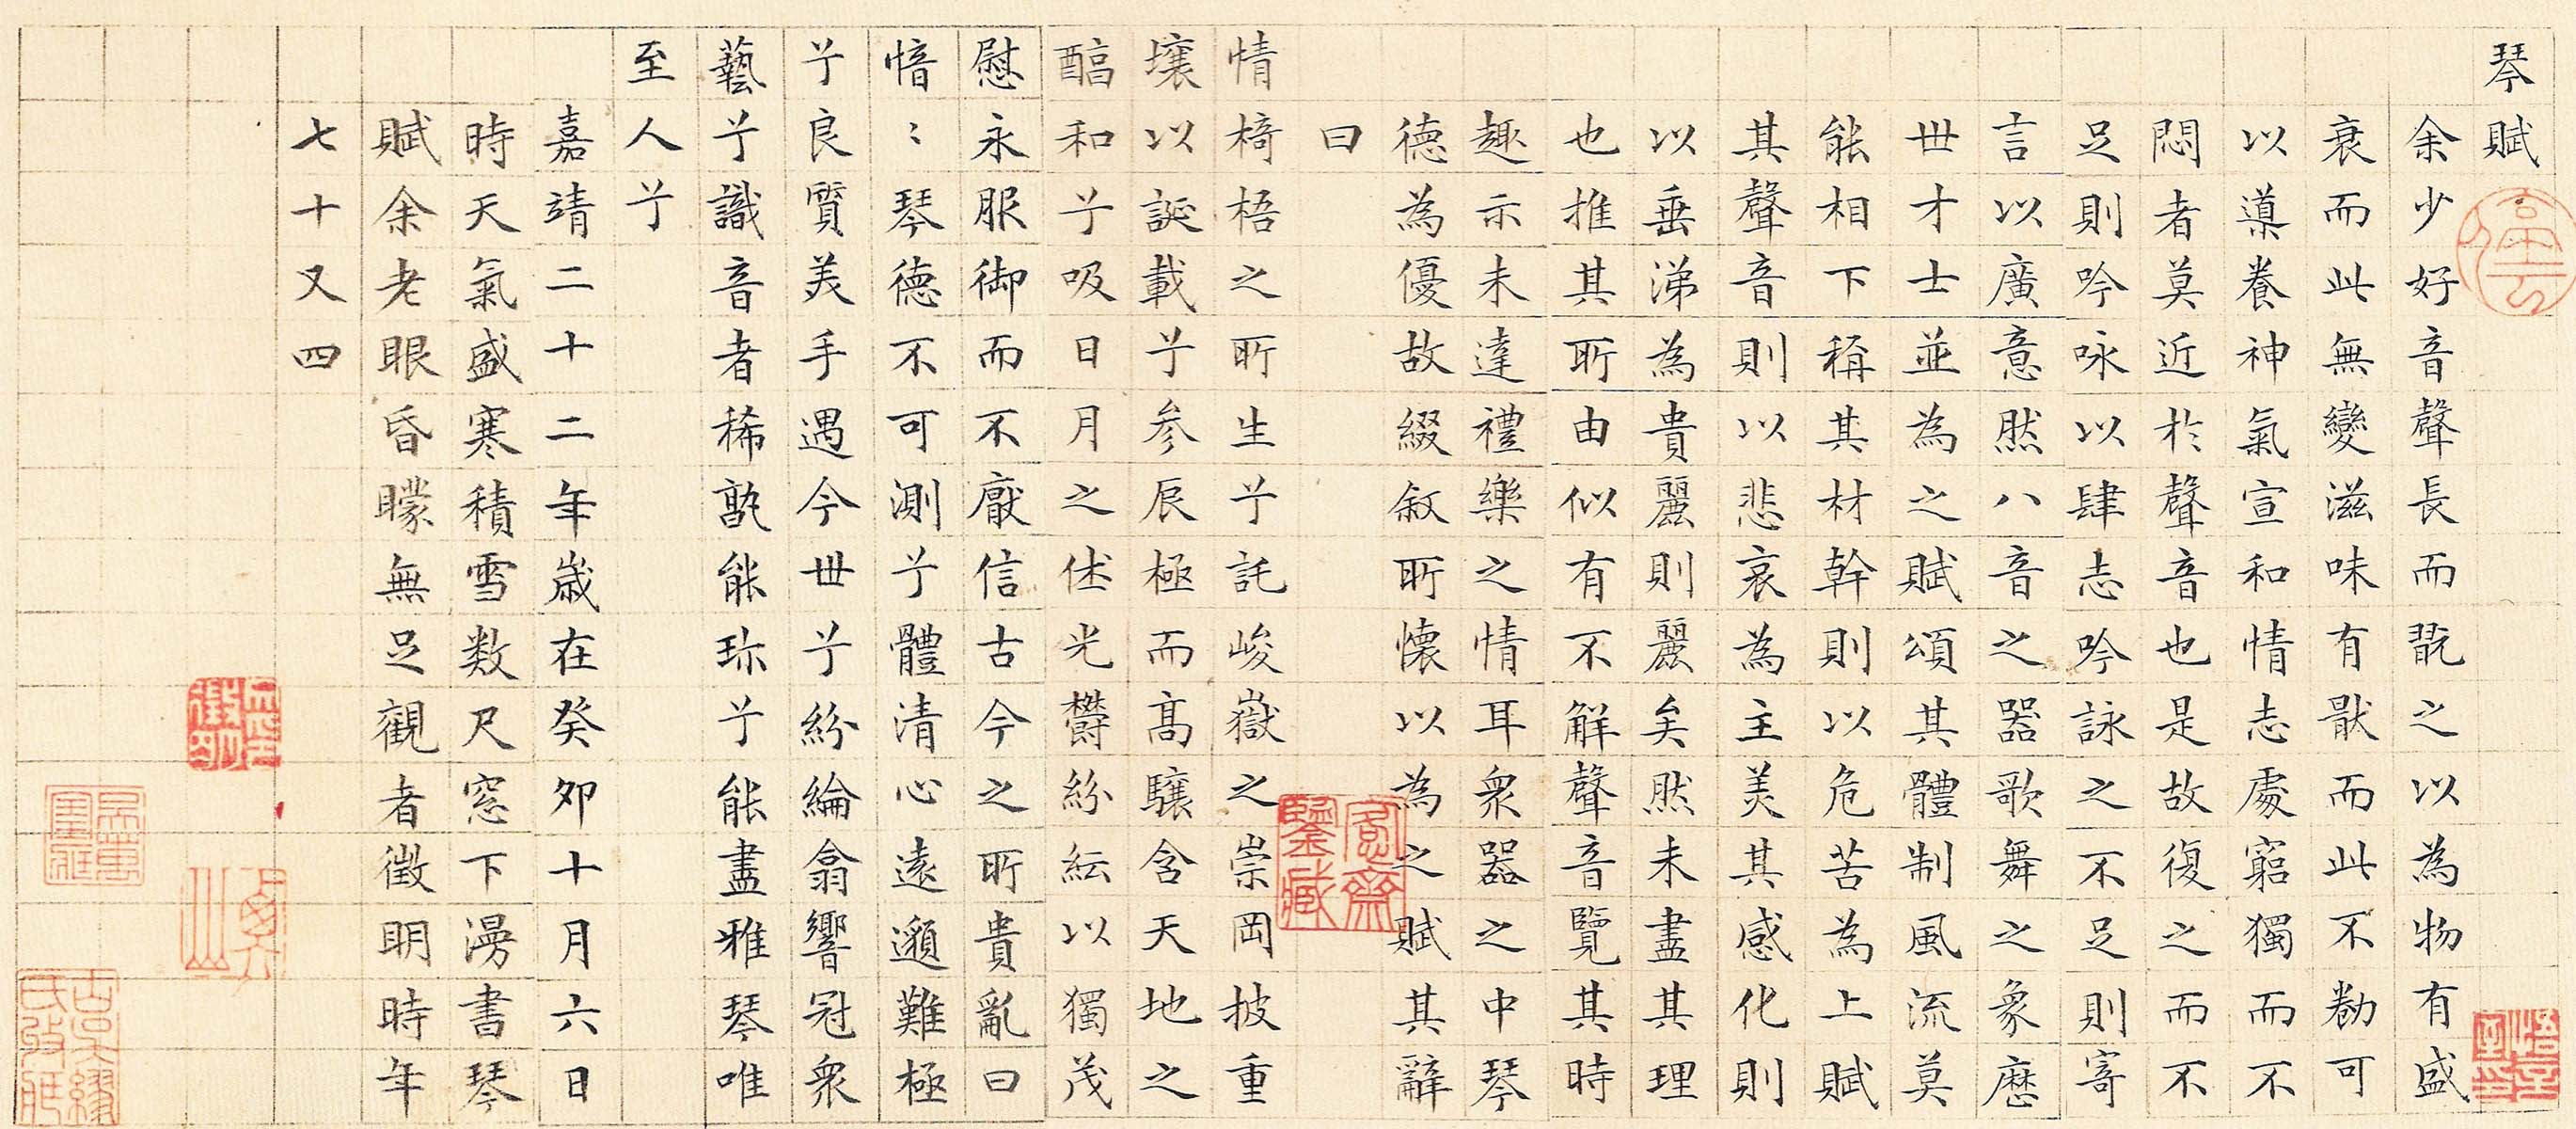 琴賦
余少好音聲長而翫之以為物有盛
衰而此無變滋味有猒而此不勌可
以導養神氣宣和情志處窮獨而不
悶者莫近於聲音也是故復之而不
足則吟咏以肆志吟詠之不足則寄
言以廣意然八音之器歌舞之象歷
世才士並為之賦頌其體制風流莫
能相下稱其材幹則以危苦為上賦
其聲音則以悲哀為主美其感化則
以垂涕為貴麗則麗矣然未盡其理
也推其所由似有不解聲音覽其時
趣示未達禮樂之情耳衆器之中琴
德為優故綴敘所懷以為之賦其辭
曰
情椅梧之所生兮託峻嶽之崇岡披重
壤以誕載兮參辰極而高驤含天地之
醕和兮吸日月之休光鬱紛紜以獨茂
慰永服御而不厭信古今之所貴亂曰
愔〻琴德不可測兮體清心遠邈難極
兮良質美手遇今世兮紛綸翕響冠衆
藝兮識音者稀孰能珍兮能盡雅琴唯
至人兮
嘉靖二十二年歲在癸卯十月六日
時天氣盛寒積雪数尺窓下漫書琴
賦余老眼昏矇無足觀者徵明時年
七十又四
停雲
悟言室印
愙齋鑒藏